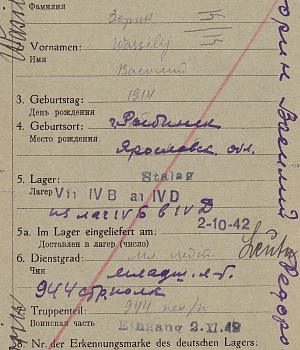 Фамилия
Зорин
Vornamen: Wassilij
Имя
Василий
3. Geburtstag: 1914
День рождения
4. Geburtsort: г. Рыбинск
Место рождения
Ярославск. обл.
5. Lager: Stalag
Лагерь
IV B an IV D
из лаг IV б в IV D
2-10-42
5a. Im Lager eingeliefert am:
Доставлен в лагерь (число)
6. Dienstgrad:
Чин
944 стр. полк
Truppenteil: 944
Воинская часть
Eingang 2. XI. 42
8. Nr. der Erkennungsmarke des deutschen Lagers:
Зорин Василий Федоро